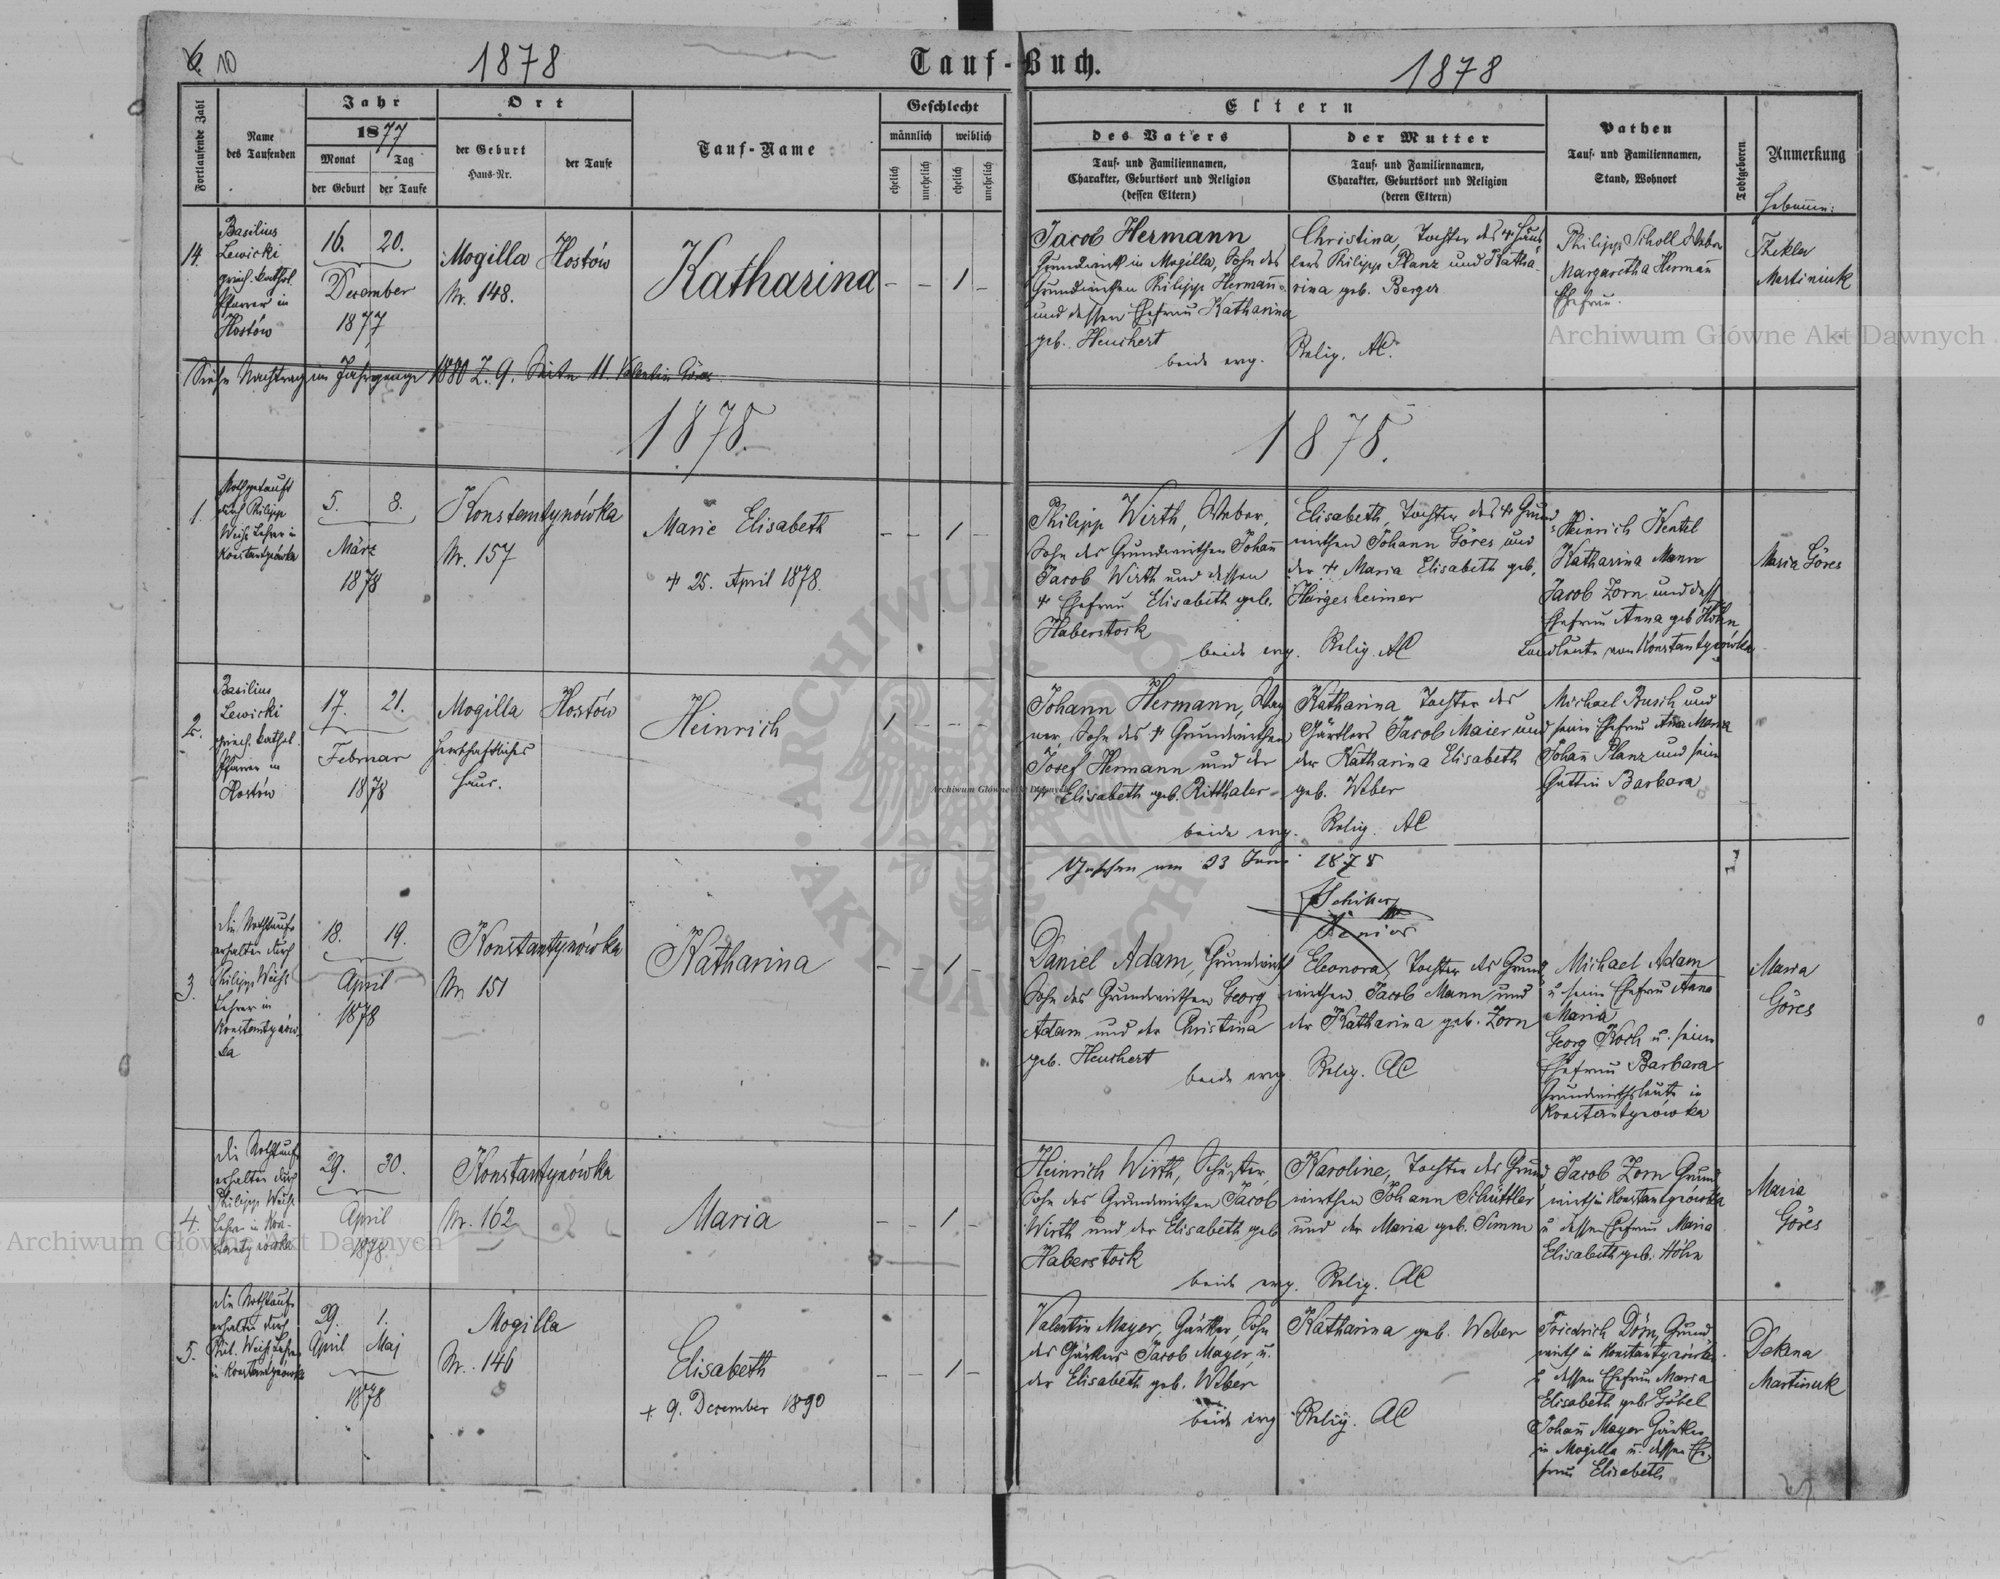 6. 10
1878
Tauf-Buch.
1878
Fortlaufende Zahl
Name
des Taufenden
Jahr
1877
Monat
Tag
der Geburt
der Taufe
Ort
der Geburt
Haus-Nr.
der Taufe
Tauf-Name
Geschlecht
männlich
weiblich
ehelich
unehelich
ehelich
unehelich
Eltern
des Vaters
Tauf- und Familiennamen,
Charakter, Geburtsort und Religion
(dessen Eltern)
der Mutter
Tauf- und Familiennamen,
Charakter, Geburtsort und Religion
(deren Eltern)
Pathen
Tauf- und Familiennamen,
Stand, Wohnort
Todtgeboren
Anmerkung
Hebamme:
14.
Basilius
Lewicki
griech. kathol.
Pfarrer in
Hostów
16. 20.
December
1877
Mogilla
Nr. 148.
Hostów
Katharina
- - 1 -
Jacob Hermann
Grundwirth in Mogilla, Sohn des
Grundwirthen Philipp Hermann
und dessen Ehefrau Katharina
geb. Heuchert
Christina, Tochter des † Häus
lers Philipp Planz und Katha
rina geb. Berger
beide evg. Relig. AC.
Philipp Scholl Weber
Margaretha Hermann
Ehefrau.
Thekla
Martiniuk
Siehe Nachtrag im Jahrgange 1880 Z. 9. Seite 11 Valentin Göres
1878.
1878.
1.
Nothgetauft
durch Philipp
Weihs Lehrer in
Konstantynówka
5. 8.
März
1878
Konstantynówka
Nr. 157
Marie Elisabeth
† 25. April 1878.
- - 1 -
Philipp Wirth, Weber,
Sohn des Grundwirthen Johann
Jacob Wirth und dessen
† Ehefrau Elisabeth geb.
Haberstock
Elisabeth, Tochter des † Grund
wirthen Johann Göres und
der † Maria Elisabeth geb.
Hergesheimer
beide evg. Relig. AC
Heinrich Kentel
Katharina Mann
Jacob Zorn und dess
Ehefrau Anna geb. Höhn
Landleute von Konstantynówka
Maria Göres
2.
Basilius
Lewicki
griech. kathol.
Pfarrer in
Hostów
17. 21.
Februar
1878
Mogilla
herrschaftliches
Haus.
Hostów
Heinrich
1 - - -
Johann Hermann, Wag
ner, Sohn des † Grundwirthen
Josef Hermann und der
† Elisabeth geb. Ritthaler
Katharina Tochter des
Gärtlers Jacob Maier und
der Katharina Elisabeth
geb. Weber
beide evg. Relig. AC
Michael Busch und
seine Ehefrau Anna Maria
Johann Planz und seine
Gattin Barbara
Gesehen am 23 Juni 1878
Senior
3.
die Nothtaufe
erhalten durch
Philipp Weihs
Lehrer in
Konstantynów-
ka
18. 19.
April
1878
Konstantynówka
Nr 151
Katharina
- - 1 -
Daniel Adam, Grundwirth
Sohn des Grundwirthen Georg
Adam und der Christina
geb. Heuchert
Eleonora, Tochter des Grund
wirthen Jacob Mann und
der Katharina geb. Zorn
beide evg. Relig. AC
Michael Adam
u. seine Ehefrau Anna
Maria
Georg Koch u. seine
Ehefrau Barbara
Grundwirthsleute in
Konstantynówka
Maria
Göres
4.
die Nothtaufe
erhalten durch
Philipp Weihs
Lehrer in Kon-
stantynówka
29. 30.
April
1878.
Konstantynówka
Nr. 162
Maria
- - 1 -
Heinrich Wirth, Schuster,
Sohn des Grundwirthen Jacob
Wirth und der Elisabeth geb.
Haberstock
Karoline, Tochter des Grund
wirthen Johann Schüttler
und der Maria geb. Simm
beide evg. Relig. AC
Jacob Zorn Grund
wirth in Konstantynówka
u. dessen Ehefrau Maria
Elisabeth geb. Höhn
Maria
Göres
5.
die Nothtaufe
erhalten durch
Phil. Weihs Lehrer
in Konstantynówka
29. 1.
April Maj
1878
Mogilla
Nr. 146
Elisabeth
† 9. December 1890
- - 1 -
Valentin Mayer, Gärtler, Sohn
des Gärtlers Jacob Mayer u.
der Elisabeth geb. Weber
Katharina geb. Weber
beide evg. Relig. AC
Friedrich Dörn, Grund
wirth in Konstantynówka
u. dessen Ehefrau Maria
Elisabeth geb. Göbel
Johann Mayer Gärtler
in Mogilla u. dessen Ehe
frau Elisabeth
Martinuk
Archiwum Główne Akt Dawnych
Archiwum Główne Akt Dawnych
Archiwum Główne Akt Dawnych